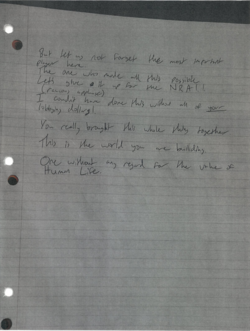 But let us not forget the most important
player here
The one who made all this possible
Let's give it up for the NRA!!!
[roaring applause]
I couldn't have done this without all of
lobbying dollars!
You really brought this whole thing together
This is the world you are building
One without any regard for the value of
Human Life